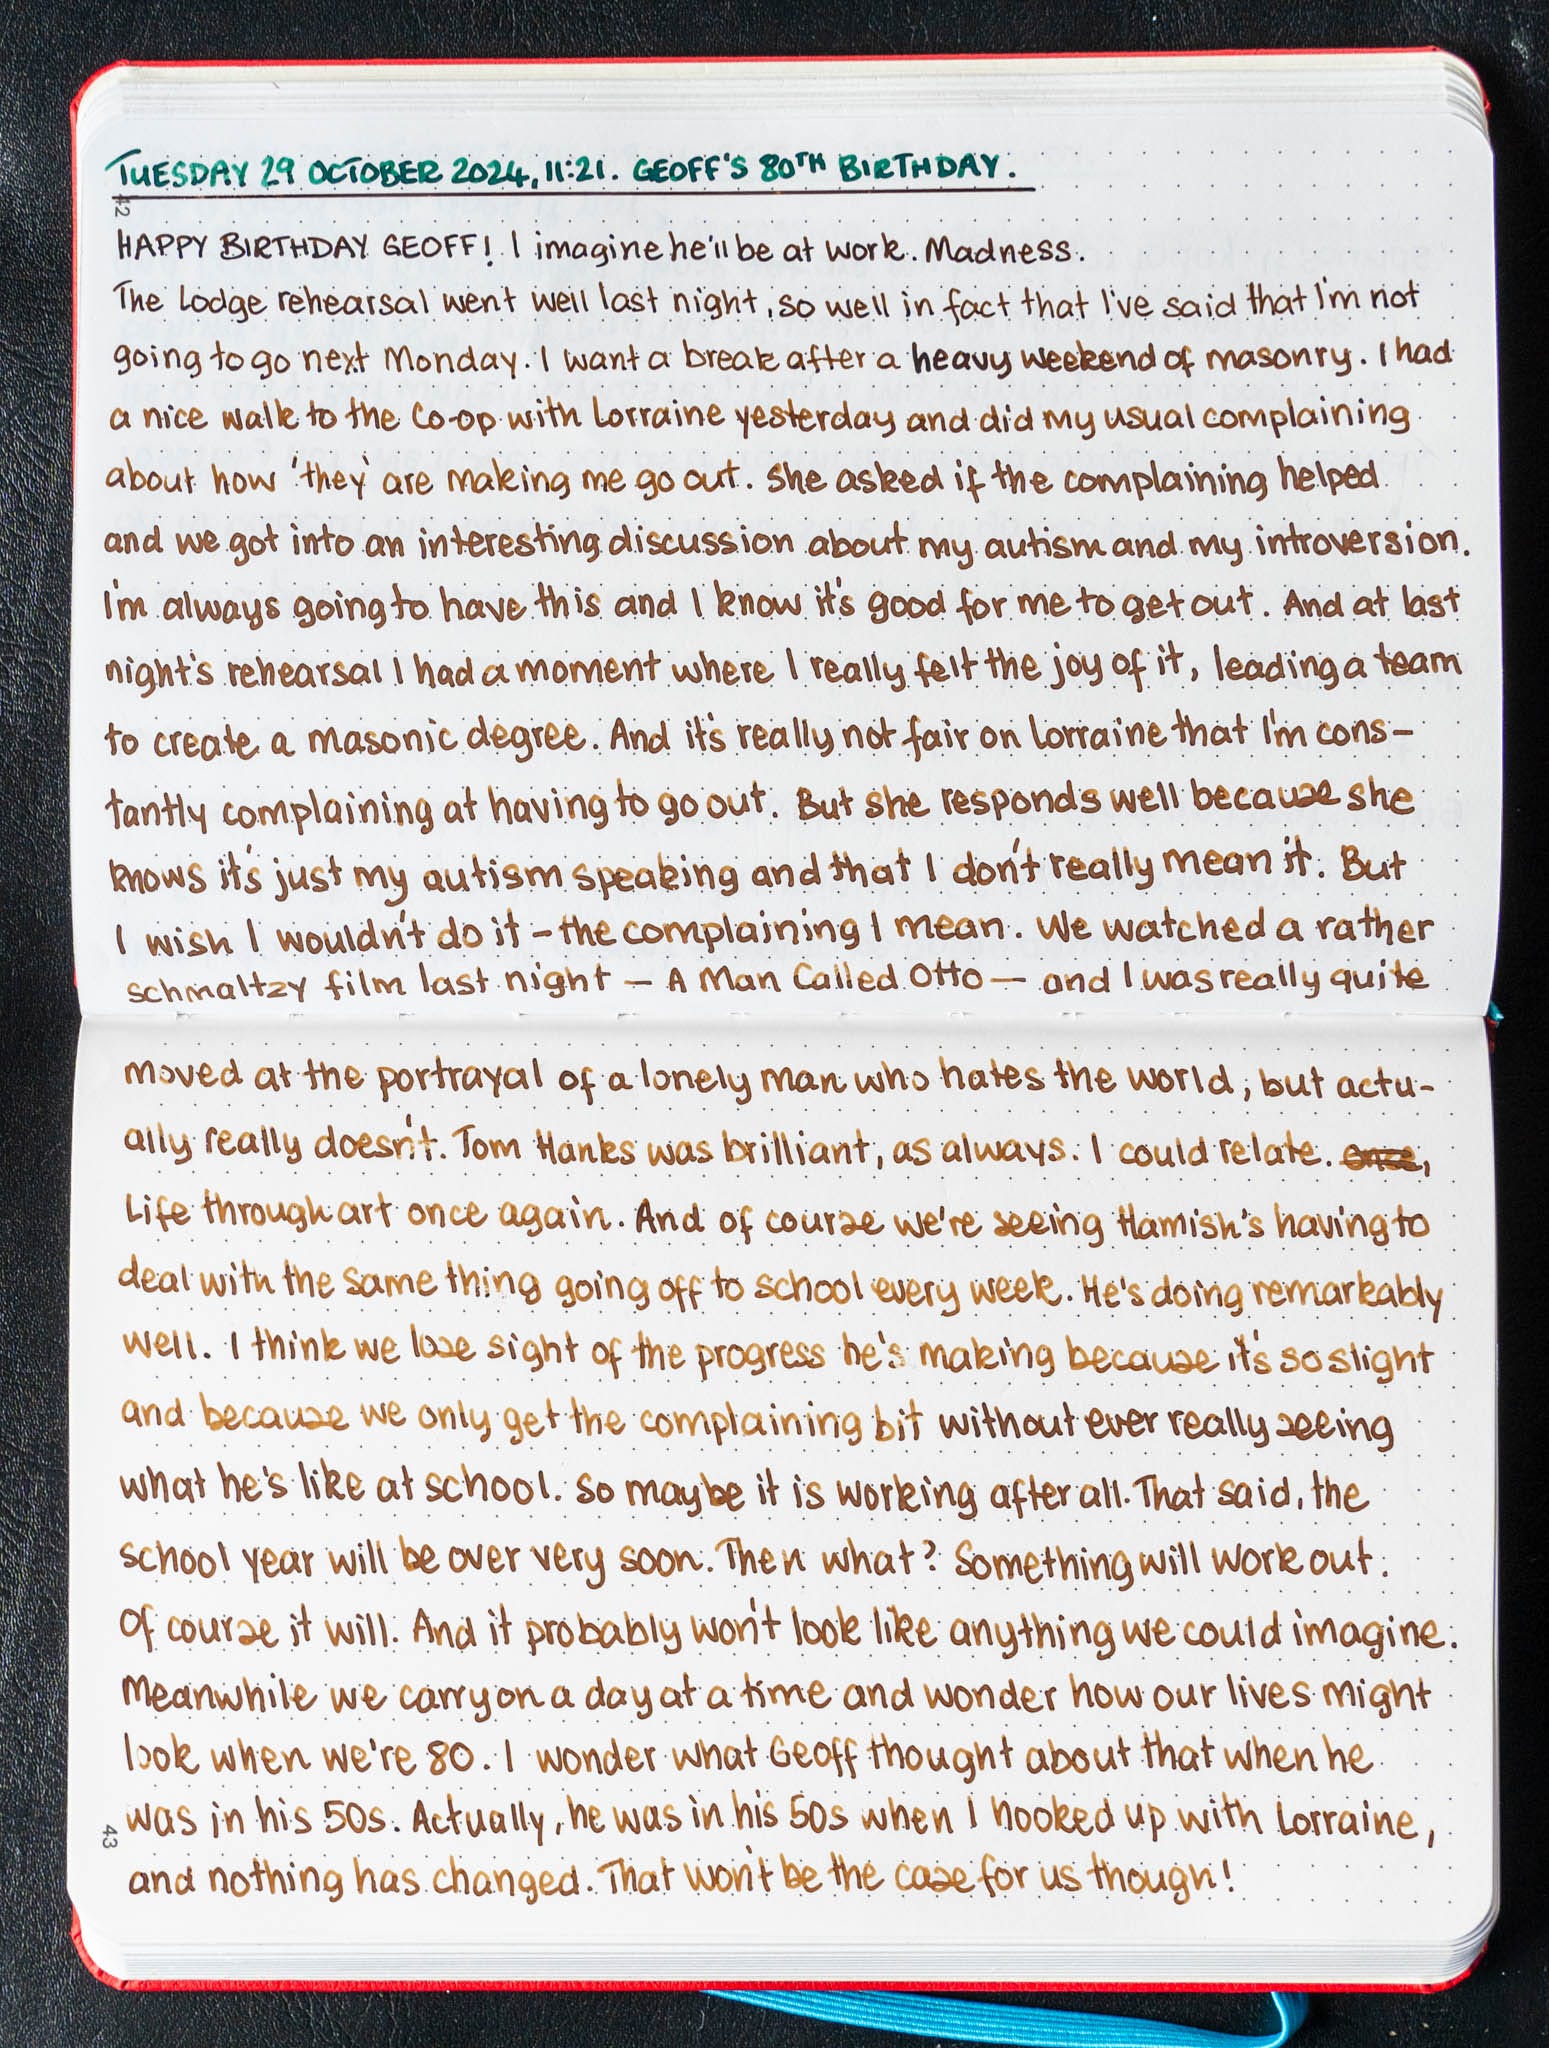 TUESDAY 29 OCTOBER 2024, 11:21. GEOFF'S 80TH BIRTHDAY.
42
HAPPY BIRTHDAY GEOFF! I imagine he'll be at work. Madness.
The Lodge rehearsal went well last night, so well in fact that I've said that I'm not
going to go next Monday. I want a break after a heavy weekend of masonry. I had
a nice walk to the Co-op with Lorraine yesterday and did my usual complaining
about how 'they' are making me go out. She asked if the complaining helped
and we got into an interesting discussion about my autism and my introversion.
I'm always going to have this and I know it's good for me to get out. And at last
night's rehearsal I had a moment where I really felt the joy of it, leading a team
to create a masonic degree. And it's really not fair on Lorraine that I'm cons-
tantly complaining at having to go out. But she responds well because she
knows it's just my autism speaking and that I don't really mean it. But
I wish I wouldn't do it – the complaining I mean. We watched a rather
schmaltzy film last night – A Man Called Otto – and I was really quite
moved at the portrayal of a lonely man who hates the world, but actu-
ally really doesn't. Tom Hanks was brilliant, as always. I could relate.
Life through art once again. And of course we're seeing Hamish's having to
deal with the same thing going off to school every week. He's doing remarkably
well. I think we lose sight of the progress he's making because it's so slight
and because we only get the complaining bit without ever really seeing
what he's like at school. So maybe it is working after all. That said, the
school year will be over very soon. Then what? Something will work out.
Of course it will. And it probably won't look like anything we could imagine.
Meanwhile we carry on a day at a time and wonder how our lives might
look when we're 80. I wonder what Geoff thought about that when he
was in his 50s. Actually, he was in his 50s when I hooked up with Lorraine,
43
and nothing has changed. That won't be the case for us though!